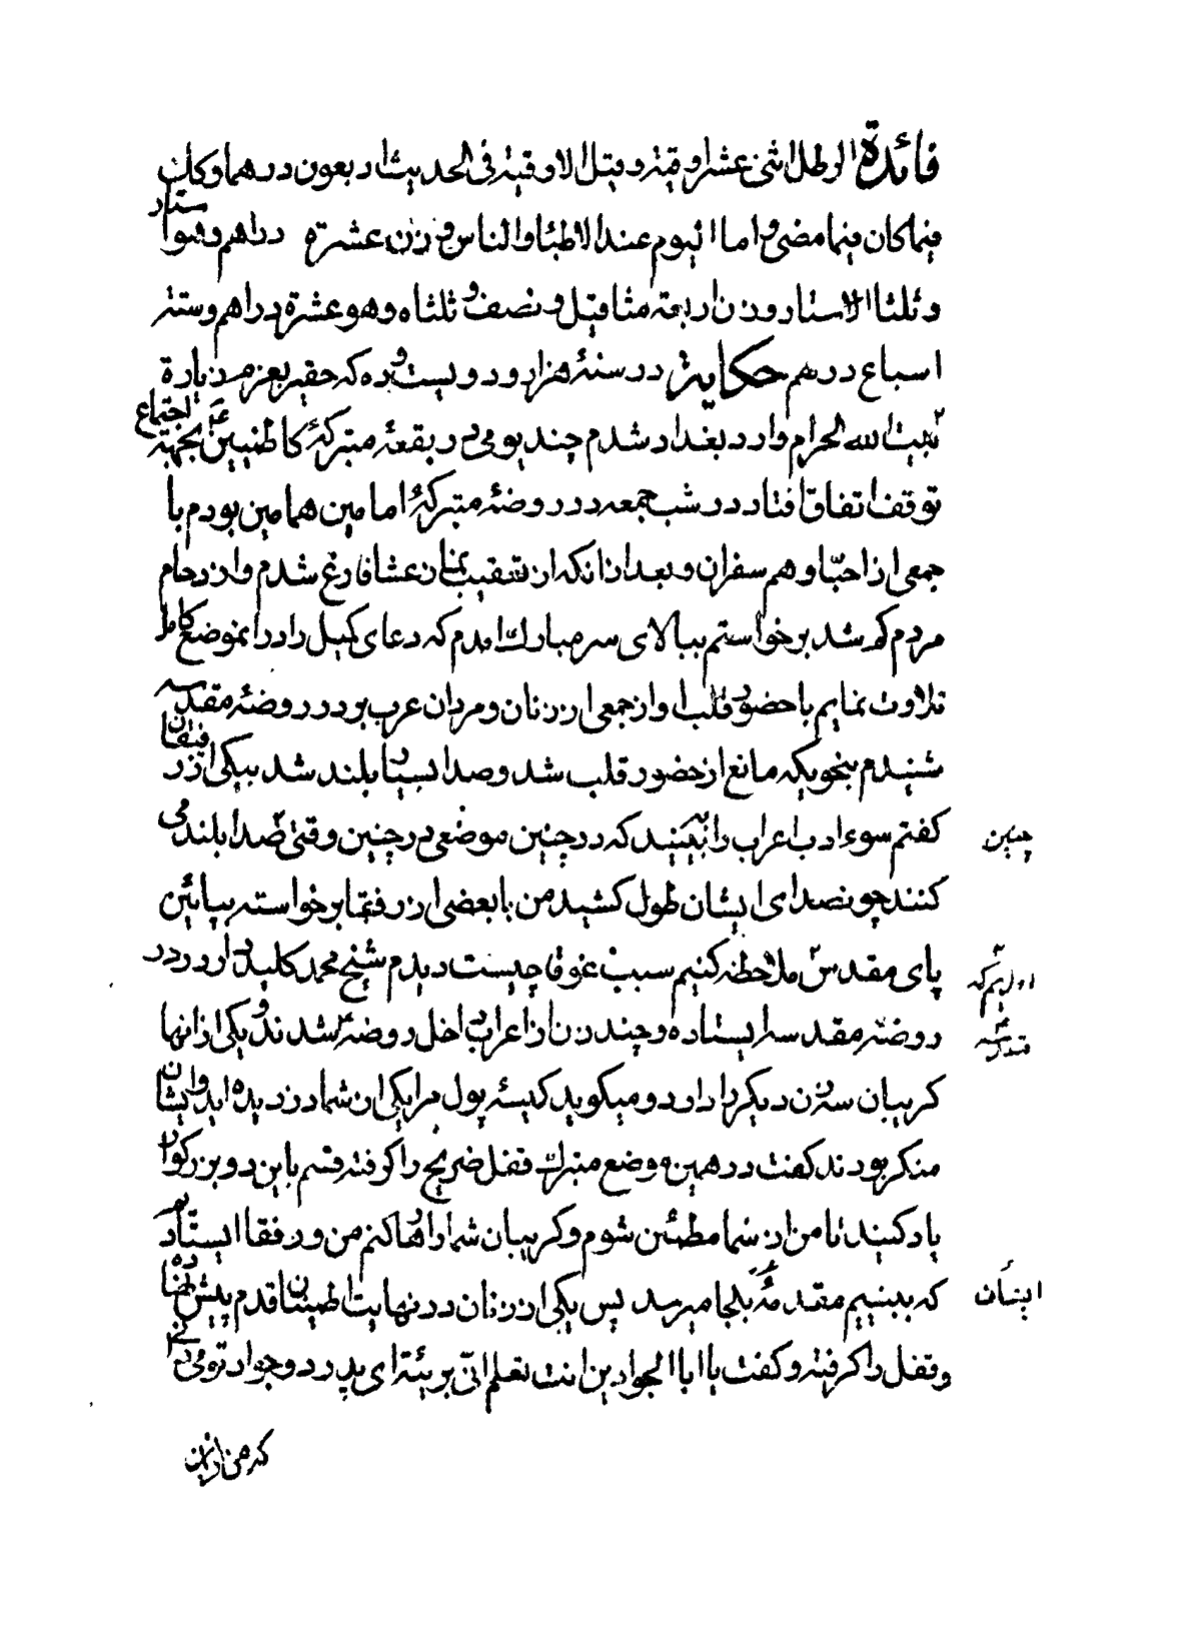 فائدة الرطل اثنی عشر اوقیة و قیل الاوقیة فی الحدیث اربعون درهما و کان
فیما کان فیما مضی و اما الیوم عند الاطباء و الناس وزن عشرة دراهم و هو استار
و ثلثا الاستار وزن اربعة مثاقیل و نصف و ثلثاه و هو عشرة دراهم و ستة
اسباع درهم حکایة در سنهٔ هزار و دویست و ده که حقیر بعزم زیارة
بیت الله الحرام وارد بغداد شدم چند یومی در بقعهٔ متبرکهٔ کاظمیین ع بجهة اجتماع
توقف اتفاق افتاد در شب جمعه در روضهٔ متبرکهٔ امامین همامین بودم با
جمعی از احبّا و هم سفران و بعد از انکه از تعقیب نماز عشا فارغ شدم و ازدحام
مردم کم شد برخواستم ببالای سر مبارک امدم که دعای کمیل را در انموضع کامل
تلاوت نمایم با حضور قلب اواز جمعی از زنان و مردان عرب بر در روضهٔ مقدسه
شنیدم بنحویکه مانع از حضور قلب شد و صدا بسیار بلند شد بیکی از رفیقان
کفتم سوء ادب اعراب را ببینید که در چنین موضعی در چنین وقتی صدا بلند می
چنین
کنند چون صدای ایشان طول کشید من با بعضی از رفقا برخواسته بپائین
پای مقدس ملاحظه کنیم سبب غوغا چیست دیدم شیخ محمد کلیددار در در
روضهٔ مقدسه ایستاده و چند زن از اعراب داخل روضه شدند و یکی از انها
کریبان سه زن دیکر را دارد و میکوید کیسهٔ پول مرا یکی از شما دزدیده اید و ایشان
منکر بودند کفت در همین موضع متبرک قفل ضریح را کرفته قسم باین دو بزرکوار
یاد کنید تا من از شما مطمئن شوم و کریبان شما را رها کنم من و رفقا ایستادیم
که ببینیم مقدمه بکجا میرسد پس یکی از زنان در نهایت اطمینان قدم پیش نهاده
و قفل را کرفته و کفت یا ابا الجوادین انت تعلم انّی بریئة ای پدر دو جواد تو می
که من از این